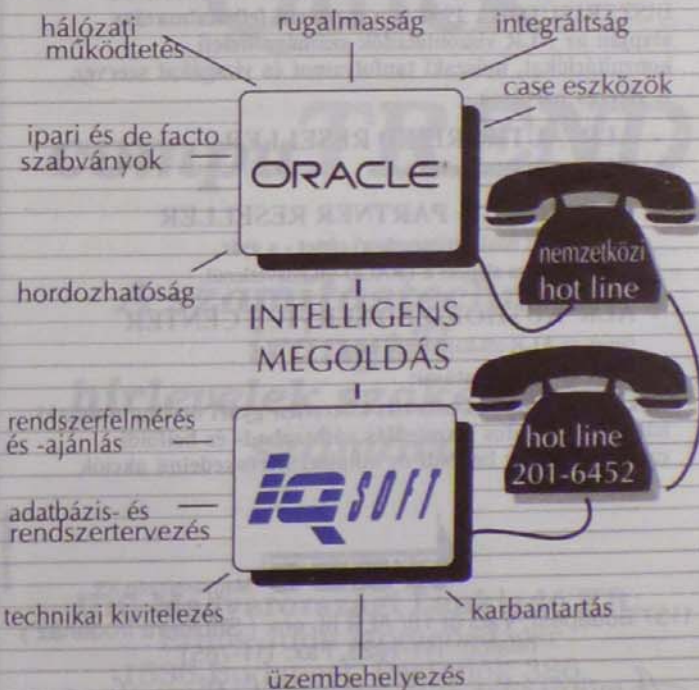 hálózati
működtetés
rugalmasság
integráltság
case eszközök
ipari és de facto
szabványok
ORACLE
hordozhatóság
nemzetközi
hot line
INTELLIGENS
MEGOLDÁS
rendszerfelmérés
és -ajánlás
adatbázis- és
rendszertervezés
iQSOFT
hot line
201-6452
technikai kivitelezés
karbantartás
üzembehelyezés